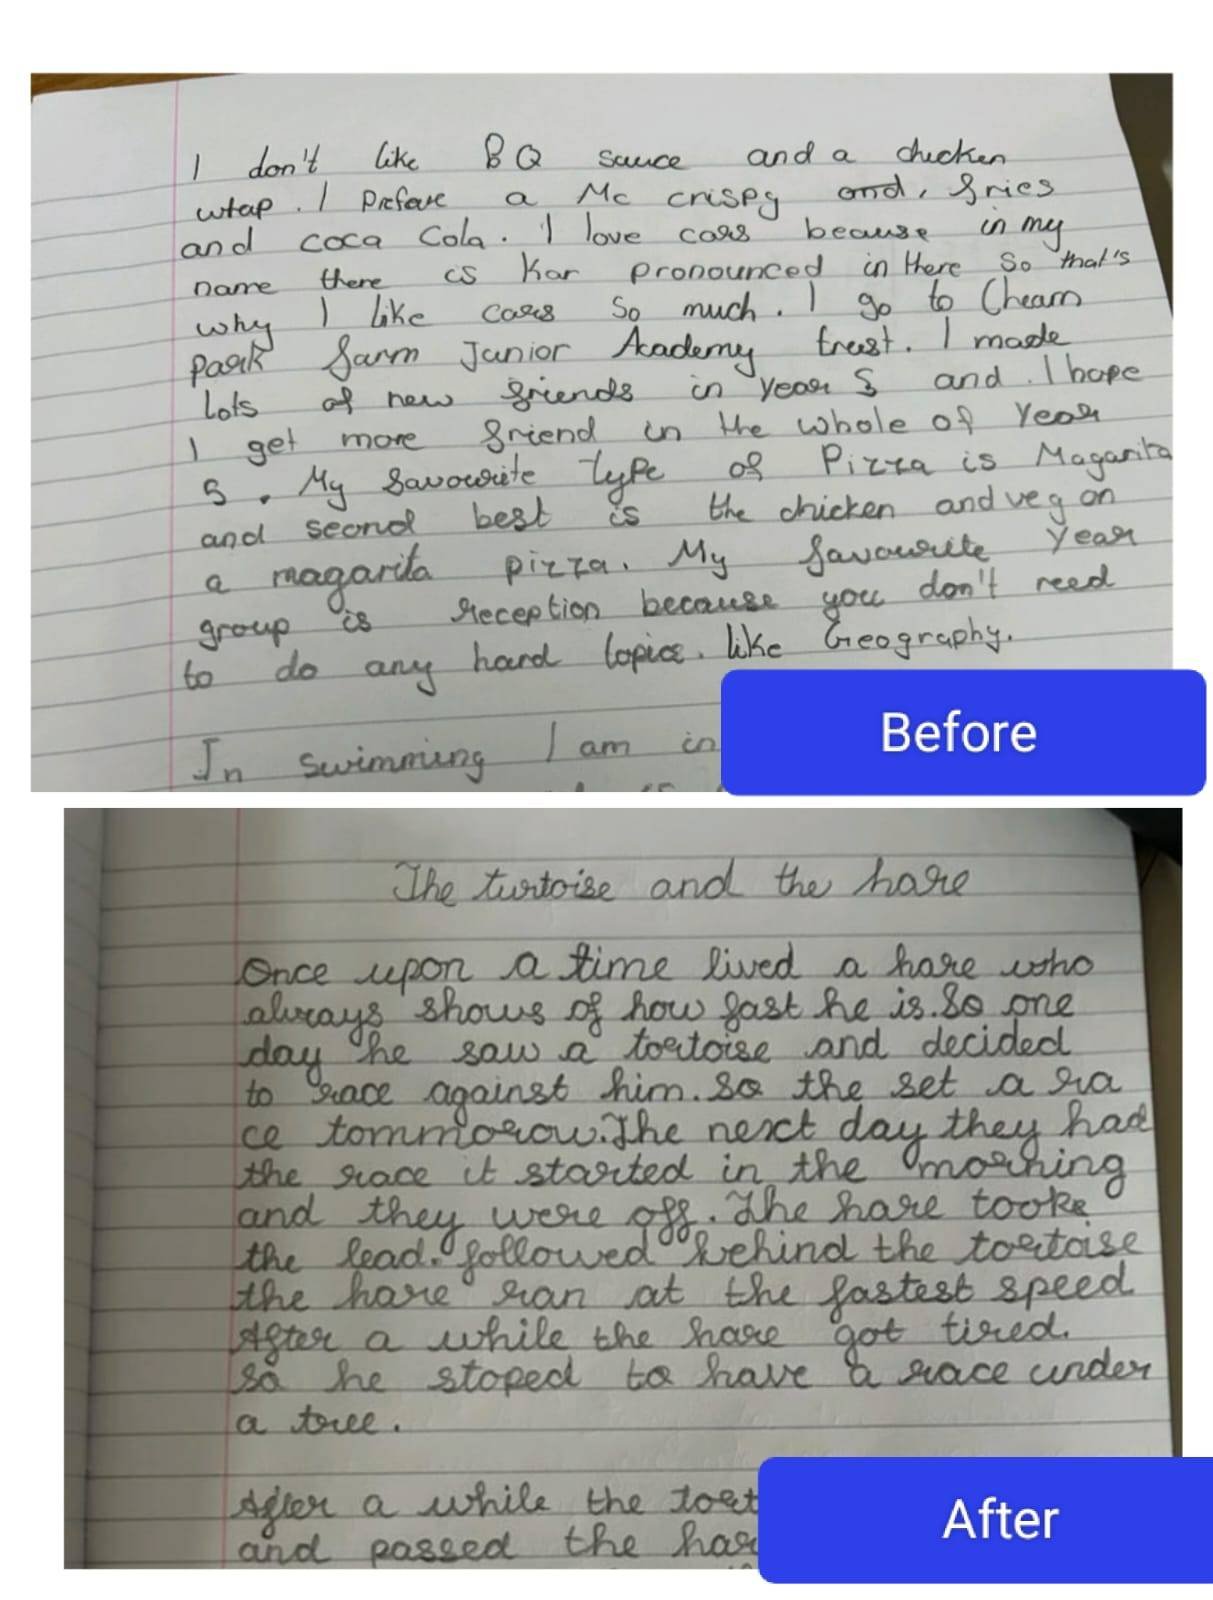 I don't like BQ sauce and a chicken
wrap. I Prefare a Mc crispy and, fries
and coca Cola. I love cars because in my
name there is Kar pronounced in there so that's
why I like cars so much. I go to Cheam
park farm Junior Academy trust. I made
lots of new friends in year 5 and I hope
I get more friend in the whole of Year
5. My favourite type of Pizza is Magarita
and second best is the chicken and veg on
a magarita pizza. My favourite Year
group is reception because you don't need
to do any hard topics. like Geography.
In swimming I am in
Before
The turtoise and the hare
Once upon a time lived a hare who
always shows of how fast he is. So one
day he saw a tortoise and decided
to race against him. So the set a ra
ce tommorow. The next day they had
the race it started in the morning
and they were off. The hare tooke
the lead. followed behind the tortoise
the hare ran at the fastest speed
After a while the hare got tired.
so he stoped to have a race under
a tree.
After a while the tort
and passed the har
After